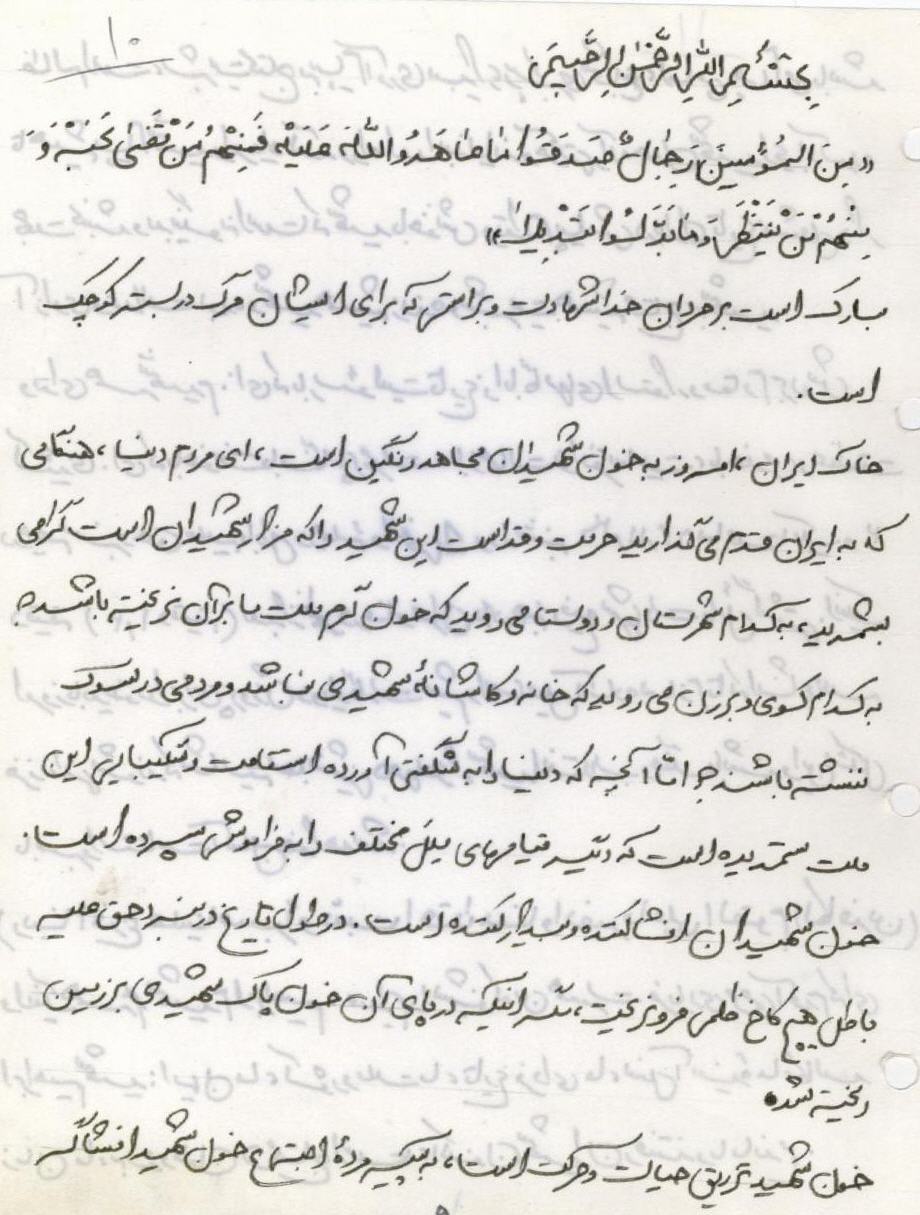 ۱۰
بِسْمِ اللهِ الرَّحْمٰنِ الرَّحِیمِ
«مِنَ المُؤمِنینَ رِجٰالٌ صَدَقُوا مٰا عٰاهَدُوا اللهَ عَلَیْه فَمِنْهُمْ مَنْ قَضیٰ نَحْبَهُ وَ
مِنْهُمْ مَنْ یَنْتَظِرُ وَ مٰا بَدَّلُوا تَبْدیلاً»
مبارک است بر مردان خدا شهادت و براستی که برای ایشان مرگ در بستر کوچک
است.
خاک ایران، امروز به خون شهیدان مجاهد رنگین است، ای مردم دنیا، هنگامی
که به ایران قدم می‌گذارید حرمت و قداست این شهید را که مزار شهیدان است گرامی
بشمرید، به کدام شهرستان و روستا می‌روید که خون گرم ملت ما بر آن نریخته باشد؟
به کدام کوی و برزن می‌روید که خانه و کاشانهٔ شهیدی نباشد و مردمی در سوگ
ننشسته باشند؟ امّا آنچه که دنیا را به شگفتی آورده استقامت و شکیبایی این
ملت ستمدیده است که دیگر قیامهای مِلَل مختلف را به فراموشی سپرده است.
خون شهیدان افشا کننده و بیدار کننده است. در طول تاریخ در نبرد حق علیه
باطل هیچ کاخ ظلمی فرو نریخت، مگر اینکه در پای آن خون پاک شهیدی بر زمین
ریخته شد.
خون شهید تزریق حیات و حرکت است، به پیکر مردهٔ اجتماع خون شهید افشاگر